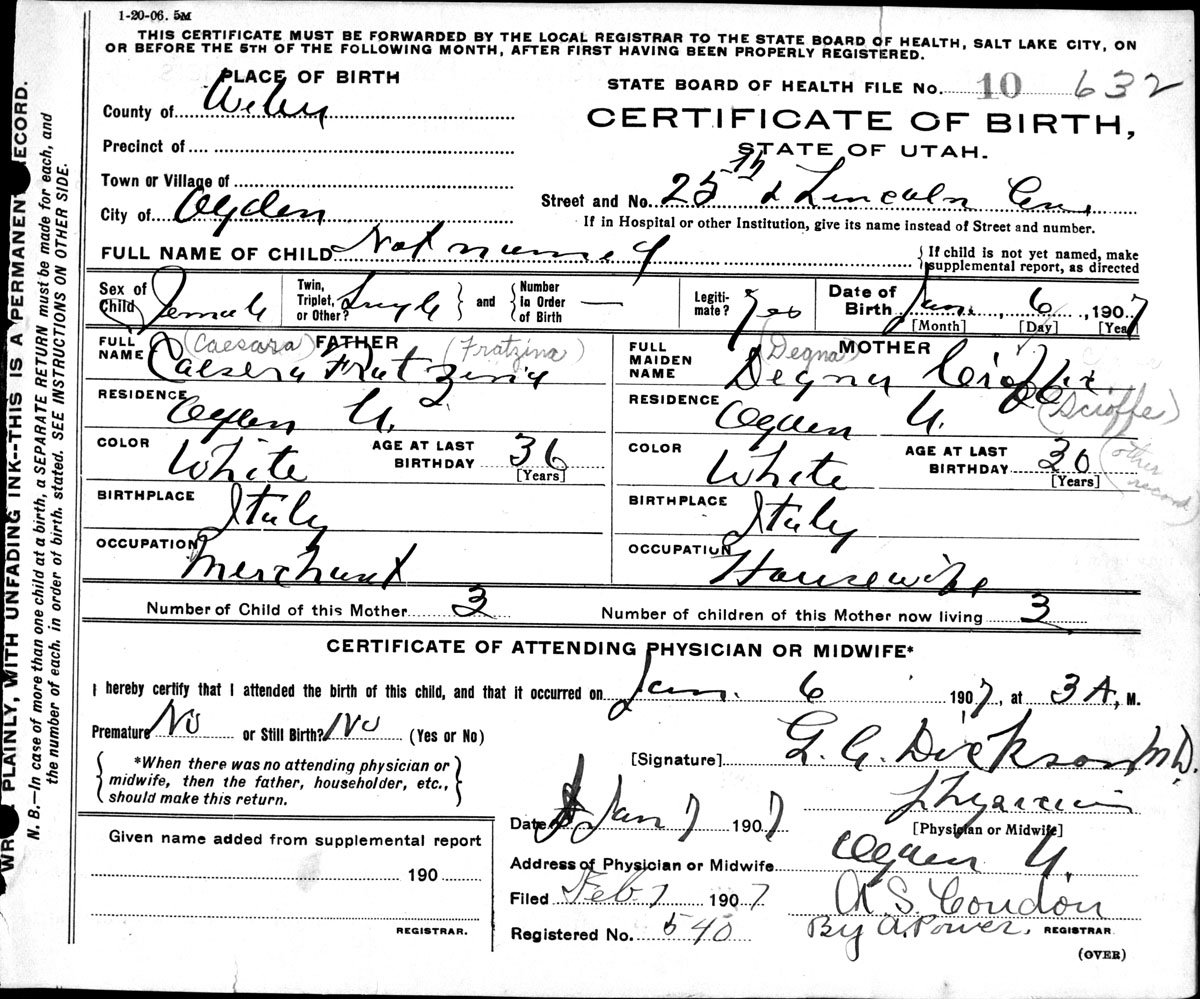 1-20-06. 5M
THIS CERTIFICATE MUST BE FORWARDED BY THE LOCAL REGISTRAR TO THE STATE BOARD OF HEALTH, SALT LAKE CITY, ON
OR BEFORE THE 5TH OF THE FOLLOWING MONTH, AFTER FIRST HAVING BEEN PROPERLY REGISTERED.
PLACE OF BIRTH
STATE BOARD OF HEALTH FILE No. 10 632
County of Weber
CERTIFICATE OF BIRTH,
Precinct of
STATE OF UTAH.
Town or Village of
Street and No. 25th & Lincoln Ave
City of Ogden
If in Hospital or other Institution, give its name instead of Street and number.
FULL NAME OF CHILD Not named
If child is not yet named, make
supplemental report, as directed
Sex of Child Female
Twin, Triplet, or Other? Single and Number in Order of Birth —
Legiti-mate? Yes
Date of Birth Jan. 6, 1907
[Month] [Day] [Year]
FULL NAME FATHER
(Caesara) (Fratzina)
Caesera Fratzina
FULL MAIDEN NAME MOTHER
(Degna)
Degna
(Scioffe)
(other record)
RESIDENCE Ogden U.
RESIDENCE Ogden U.
COLOR White
AGE AT LAST BIRTHDAY 36 [Years]
COLOR White
AGE AT LAST BIRTHDAY 30 [Years]
BIRTHPLACE Italy
BIRTHPLACE Italy
OCCUPATION Merchant
OCCUPATION Housewife
Number of Child of this Mother 3
Number of children of this Mother now living 3
CERTIFICATE OF ATTENDING PHYSICIAN OR MIDWIFE*
I hereby certify that I attended the birth of this child, and that it occurred on Jan. 6 1907, at 3 A, M.
Premature No or Still Birth? No (Yes or No)
[Signature] Dickson M.D.
*When there was no attending physician or
midwife, then the father, householder, etc.,
should make this return.
Physician
[Physician or Midwife]
Date Jan 7 1907
Address of Physician or Midwife Ogden U.
Filed Feb 7 1907
A. S. Condon
Registered No. 540
By A. Power. REGISTRAR
(OVER)
Given name added from supplemental report
190
REGISTRAR.
PLAINLY, WITH UNFADING INK--THIS IS A PERMANENT RECORD.
N. B.—In case of more than one child at a birth, a SEPARATE RETURN must be made for each, and
the number of each, in order of birth, stated. SEE INSTRUCTIONS ON OTHER SIDE.